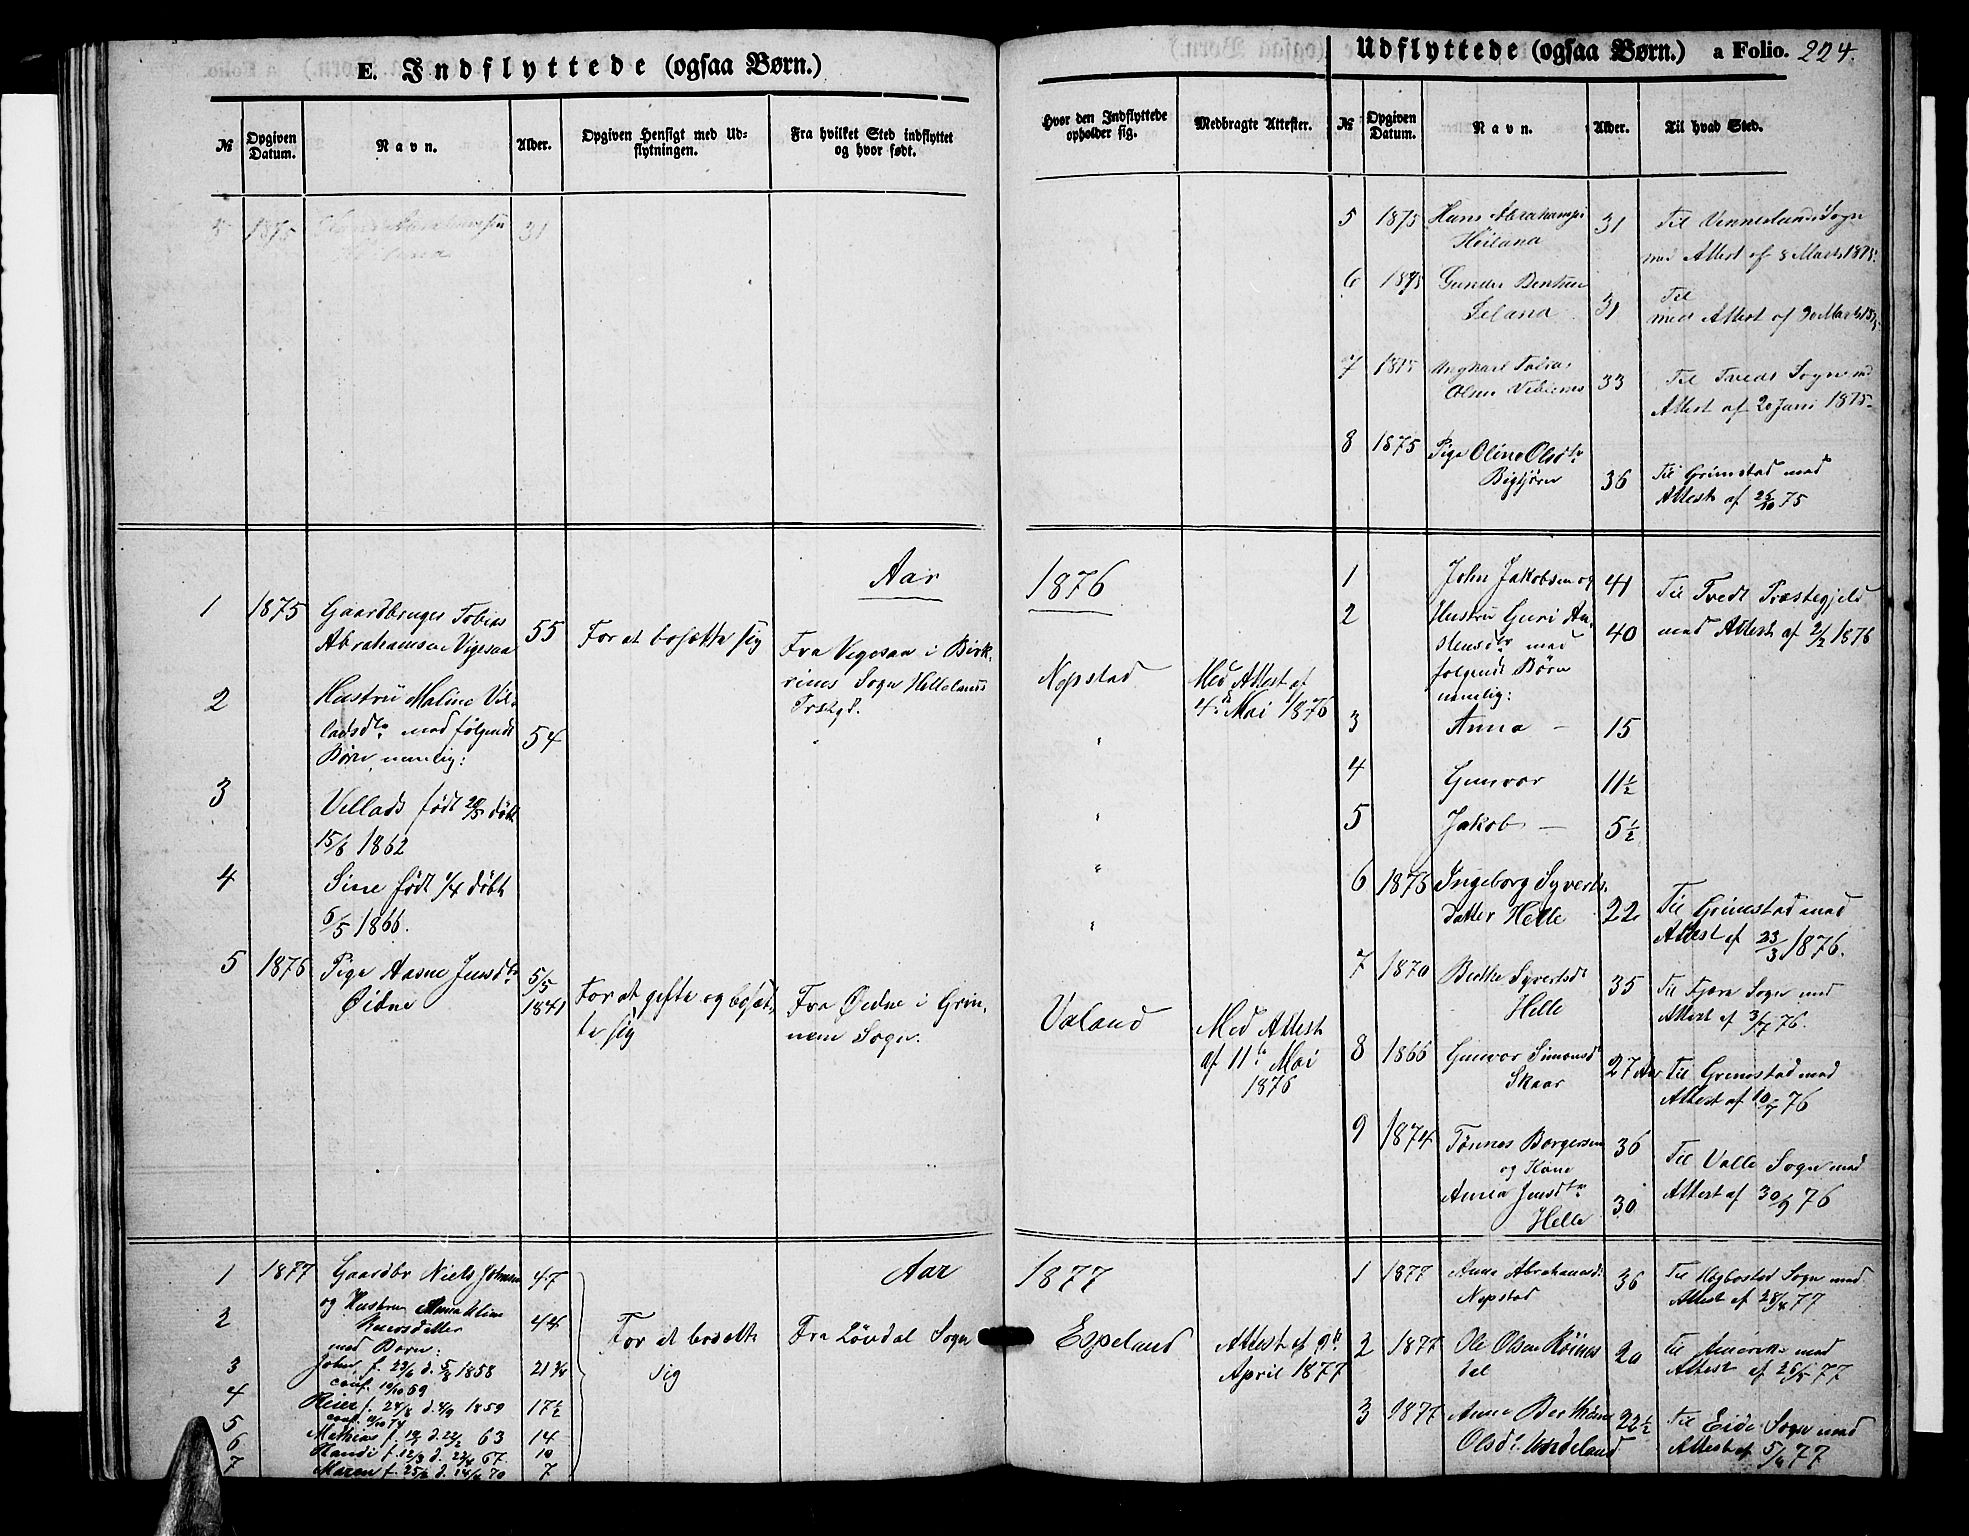 E. Indflyttede (ogsaa Børn.)
№
Opgiven
Datum.
Navn.
Alder.
Opgiven Hensigt med Ud-
flytningen.
Fra hvilket Sted indflyttet
og hvor født.
Hvor den Indflyttede
opholder sig.
Medbragte Attester.
5 1875 31
Aar 1876
1 1875 Gaardbruger Tobias
Abrahamsen Vigesaa 55 For at bosætte sig Fra Vigesaa i Birk-
rims Sogn Hellelands
Prstgd.
Nepstad
Med Attest af
4de Mai 1876
2 Hustru Maline Vil-
ladsdtr med følgende 54
Børn, nemlig:
3 Villads født 20/5 døbt
15/6 1862
4 Sine født 1/4 døbt
6/5 1866.
5 1876 Pige Aasne Jensdtr
Øidne
5/5
1841
For at gifte og bosæt-
te sig
Fra Øidne i Grin-
nem Sogn.
Valand
Med Attest
af 11te Mai
1876
Aar 1877
1 1877 Gaardbr Niels Johnsen 47
2 og Hustru Anna Eline
Reiersdatter 44
med Børn:
3 John f. 23/6 d. 5/7 1858 21 3/4
conf. 10/10 69
4 Reier f. 24/8 d. 4/9 1859 17½
5 Mathias f. d. 22/2 63 14
6 Randi f. 12/3 d. 22/4 67. 10
7 Maren f. 25/2 d. 14/4 70 7
For at bosette
sig
Fra Løvdal Sogn
Espeland
Attest af 9de
April 1877
Udflyttede (ogsaa Børn.) a Folio. 224.
№
Opgiven
Datum.
Navn.
Alder.
Til hvad Sted.
5 1875 Hans Abrahamsen
Høiland 31 Til Vennesland Sogn
med Attest af 8 Marts 1875.
6 1875 Gunder Bentsen
31 Til
med Attest af 30 Marts 1875
7 1875 Tobias
Olsen 33 Til Tveds Sogn med
Attest af 20 Juni 1875.
8 1875 Pige Oline Olsdtr
Bigtjørn 36 Til Grimstad med
Attest af 25/10 75
1 John Jakobsen og 41 Til Tvedt Præstegjeld
2 Hustru Guri Au-
stensdtr med 40 med Attest af 2/2 1876
følgende Børn
nemlig:
3 Anna — 15
4 Gunvor 11½
5 Jakob — 5½
6 1875 Ingeborg Syverts-
datter Helle 22 Til Grimstad med
Attest af 23/3 1876.
7 1870 Berthe Syvertsd
Helle 35 Til Fjære Sogn med
Attest af 3/7 76.
8 1866 Gunvor Simonsd
Skaar 27 Aar Til Grimstad med
Attest af 10/7 76
9 1874 Tønnes Borgersen 36
og Kone
Anna Jensdtr 30
Helle
Til Valle Sogn med
Attest af 30/9 76
1 1877 Anne Abrahamsd.
Nepstad 36 Til Hægbostad Sogn med
Attest af 28/4 77
2 1877 Ole Olsen Røines
dal 20 Til Amerika med
Attest af 26/5 77
3 1877 Anne Berthine
Olsd. 22½ Til Eide Sogn med
Attest af 5/6 77